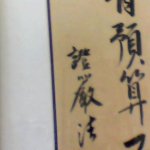 預算
證嚴法